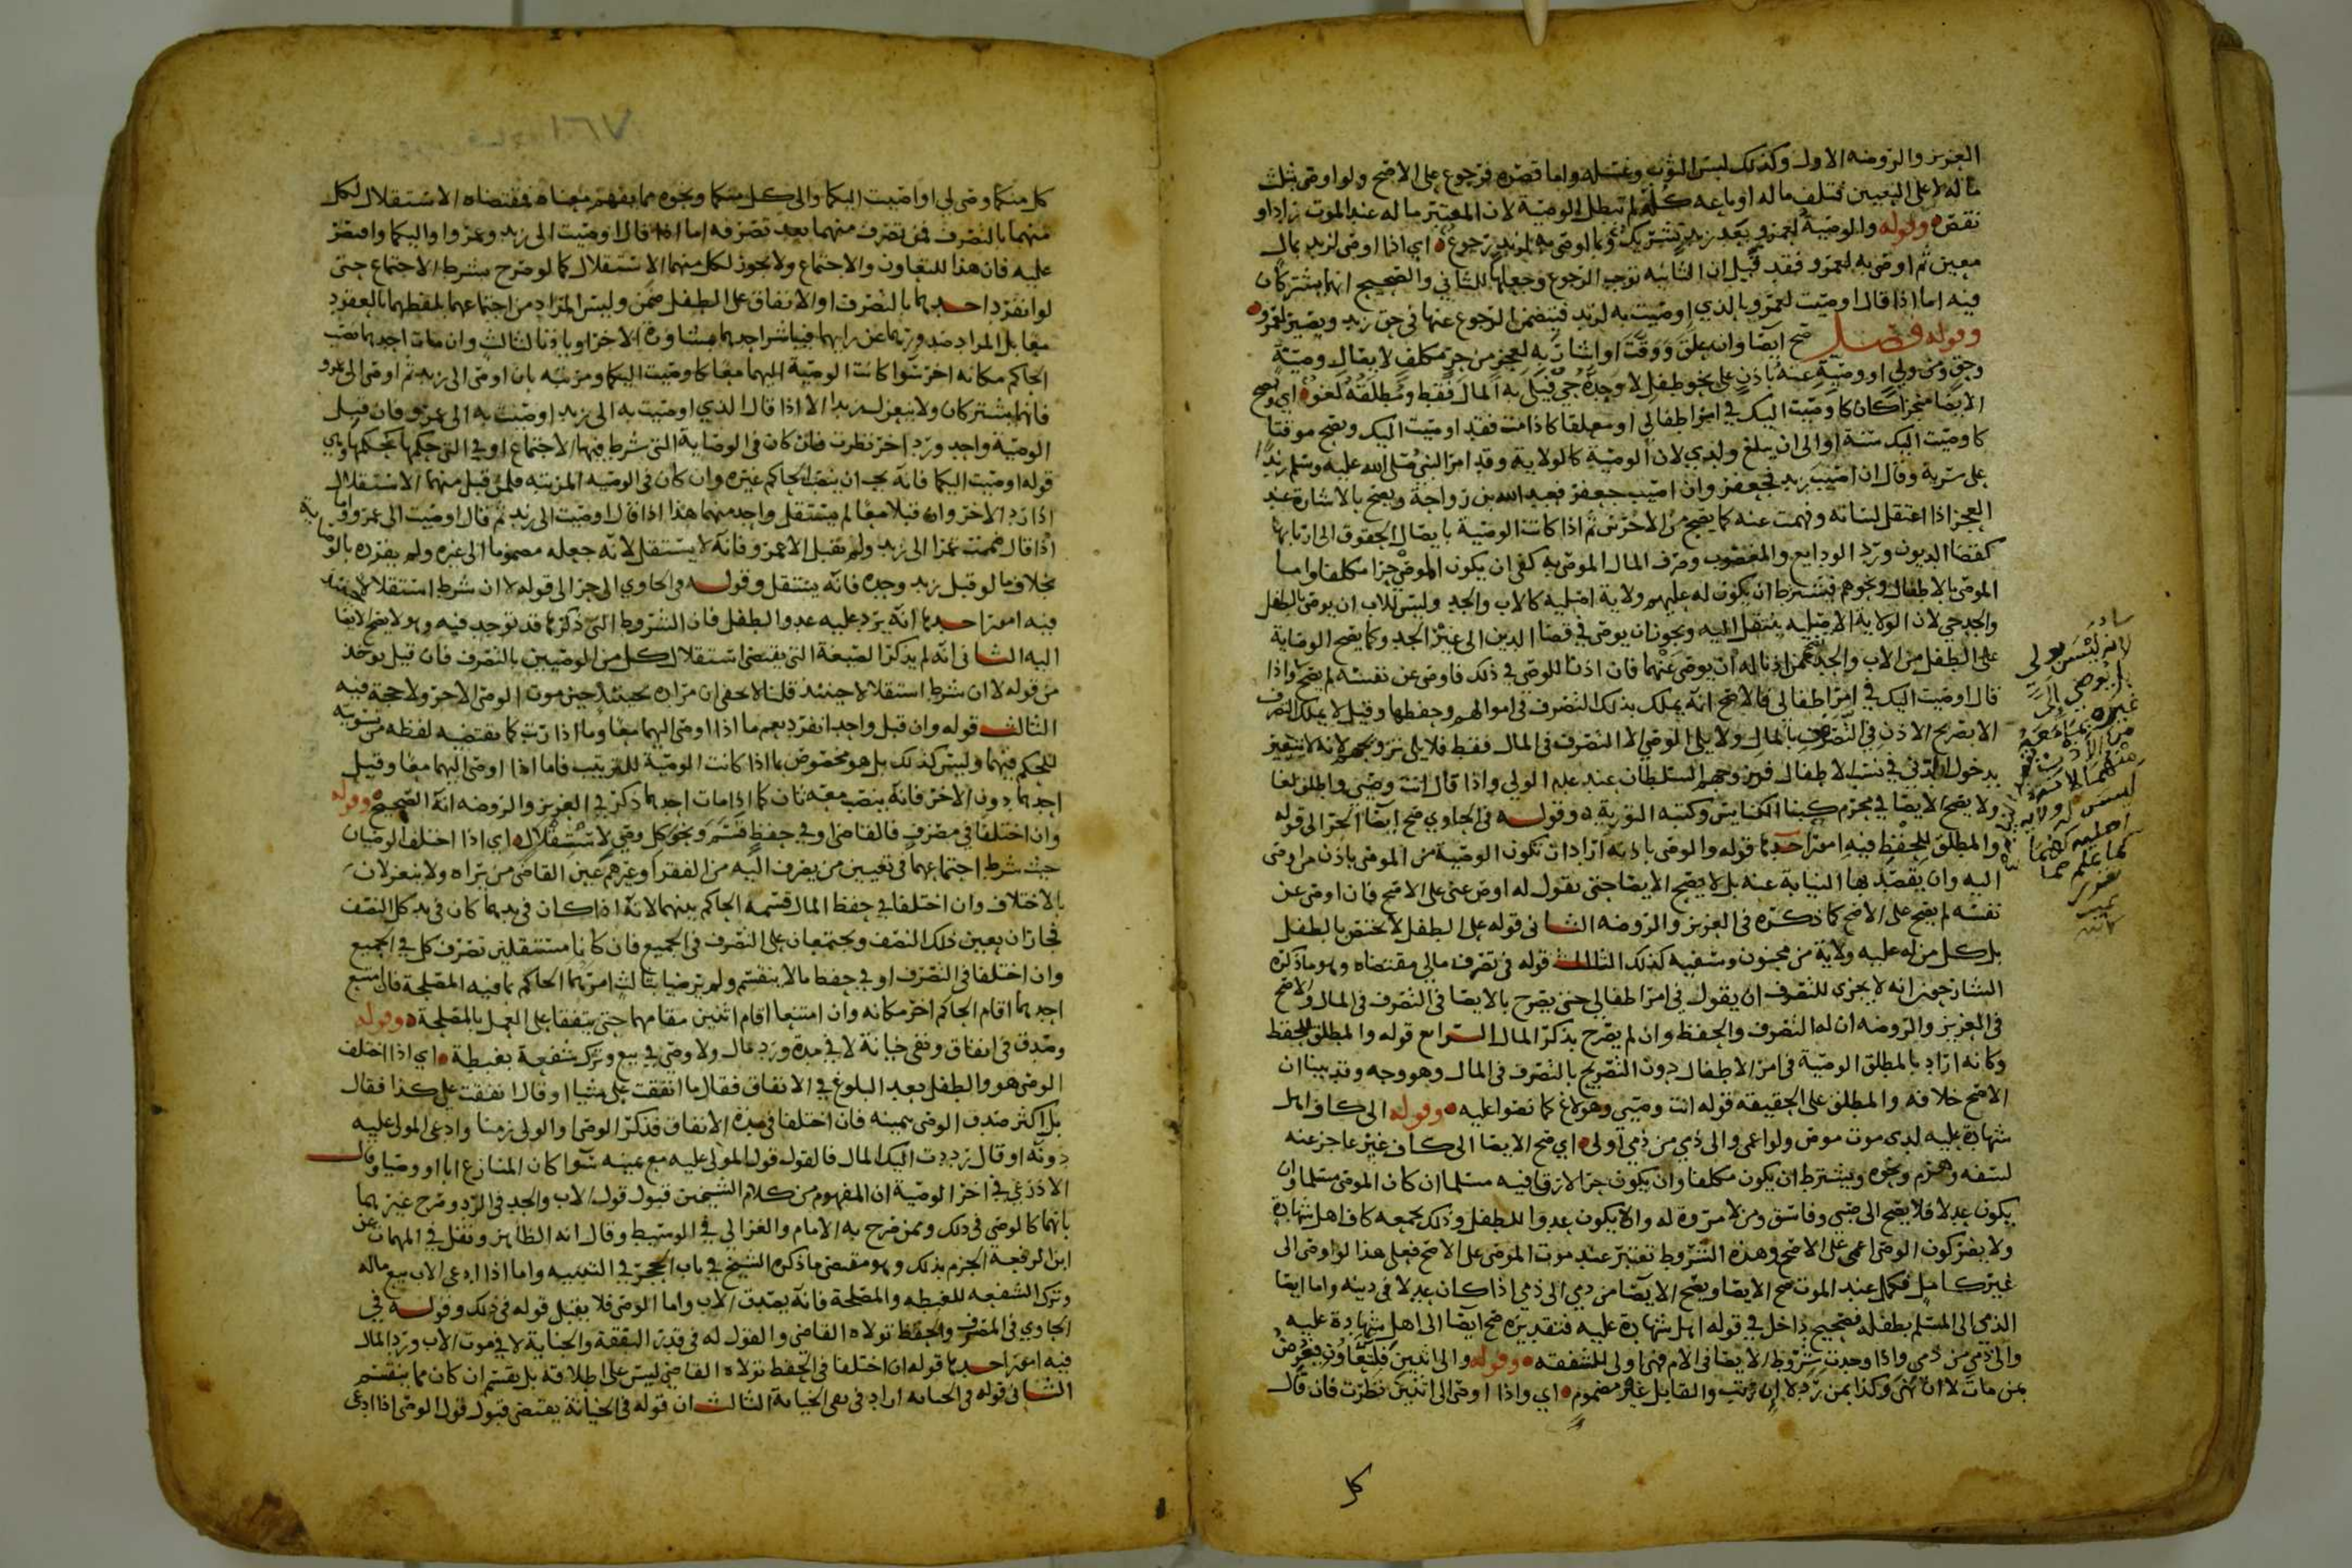 العزيز والروضه الاول وكذلك لبس الثوب وغسله واما قصره فرجوع على الاصح ولو اوصى بثلث
ماله لا على التعيين فتلف ماله او باعه كله لم تبطل الوصية لان المعتبر ماله عند الموت زاد او
نقص وقوله والوصية لعمرو بعد زيد تشريك وبما لوصى به لزيد رجوع اي اذا اوصى لزيد بمال
معين ثم اوصى به لعمرو فقد قيل ان الثانيه توجب الرجوع وجعلها للثاني والصحيح انهما يشتركان
فيه اما اذا قال اوصيت لعمرو بالذي اوصيت به لزيد فيتضمن الرجوع عنها في حق زيد ويصير لعمرو
وقوله فصل صح ايصا وان علق ووقت او اشارة به لعجز من حر مكلف لايصال وصية
وحق ومن ولي او وصية عنه باذن على نحو طفل لا وجده حي قبل به المال فقط ومطلقه لغو اي يصح
الايصا منجزا كان كاوصيت اليك في امر اطفالي او معلقا كاذا مت فقد اوصيت اليك ويصح موقتا
كاوصيت اليك سنة او الى ان يبلغ ولدي لان الوصية كالولاية وقد امر النبي صلى الله عليه وسلم زيدا
على سرية وقال ان اصيب زيد فجعفر وان اصيب جعفر فعبد الله بن رواحة ويصح بالاشارة عند
العجز اذا اعتقل لسانه وفهمت عنه كما يصح من الاخرس ثم اذا كانت الوصية بايصال الحقوق الى اربابها
كقضا الديون ورد الودايع والمغصوب وصرف المال الموصى به كفى ان يكون الموصي حرا مكلفا واما
الموصي بالاطفال ونحوهم فيشترط ان يكون له عليهم ولاية اصلية كالاب والجد وليس للاب ان يوصي بالطفل
والجد حي لان الولاية الاصليه ينتقل اليه ويجوز ان يوصي في قضا الدين الى غير الجد وكما يصح الوصاية
على الطفل من الاب والجد يصح ممن اذنا له ان يوصي عنهما فان اذنا للوصي في ذلك فاوصى عن نفسه لم يصح واذا
قال اوصيت اليك في امر اطفالي فالاصح انه يملك بذلك التصرف في اموالهم وحفظها وقيل لا يملك التصرف
الا بصريح الاذن في التصرف بالمال ولا يلي الوصي الا التصرف في المال فقط فلا يلي تزويجهم لانه لا يتعير
بدخول الدني في نسب الاطفال فيزوجهم السلطان عند عدم الولي واذا قال انت وصيي واطلق لغا
ولا يصح الايصا في محرم كبنا الكنايس وكتبه التورية وقوله في الحاوي صح ايصا الحر الى قوله
والمطلق للحفظ فيه امور احدها قوله والوصي باذنه اراد ان تكون الوصية من الموصي باذن من اوصى
اليه وان يقصد بها النيابة عنه بل لا يصح الايصا حتى يقول له اوص عني على الاصح فان اوصى عن
نفسه لم يصح على الاصح كما ذكره في العزيز والروضه الثاني قوله على الطفل لا يختص بالطفل
بل كل من له عليه ولاية من مجنون وسفيه كذلك الثالث قوله في تصرف مالي مقتضاه وهو ما ذكره
الشارحون انه لا يجزي للتصرف ان يقول في امر اطفالي حتى يصرح بالايصا في التصرف في المال والاصح
في العزيز والروضه ان له التصرف والحفظ وان لم يصرح بذكر المال الرابع قوله والمطلق للحفظ
وكانه اراد بالمطلق الوصية في امر الاطفال دون التصريح بالتصرف في المال وهو وجه وقد بينا ان
الاصح خلافه والمطلق على الحقيقه قوله انت وصيي وهو لاغ كما نصوا عليه وقوله الى كاف اهل
شهادة عليه لدى موت موص ولو اعمى والى ذمي من ذمي اولى اي صح الايصا الى كاف غير عاجز عنه
لسفه وهرم ونحوه ويشترط ان يكون مكلفا وان يكون حرا لا رق فيه مسلما ان كان الموصي مسلما وان
يكون عدلا فلا يصح الى صبي وفاسق ومن لا مروة له والا يكون عدوا للطفل وذلك يجمعه كاف اهل شهادة
ولا يضر كون الوصي اعمى على الاصح وهذه الشروط تعتبر عند موت الموصي على الاصح فعلى هذا لو اوصى الى
غير كامل فكمل عند الموت صح الايصا ويصح الايصا من ذمي الى ذمي اذا كان عدلا في دينه واما ايصا
الذمي الى المسلم بطفله فصحيح داخل في قوله اهل شهادة عليه فتقديره صح ايصا الى اهل شهادة عليه
والى ذمي من ذمي واذا وجدت شروط الايصا في الام فهي اولى للشفقه وقوله والى اثنين فللتعاون فيعوض
بمن مات لا ان ثنى وكذا بمن رد لا ان رتبه والقابل غير مضموم اي واذا اوصى الى اثنين نظرت فان قال
كل
لانه ليس بولي
كل منكما وصي لي او اوصيت اليكما والى كل منكما ونحوه مما يفهم معناه فمقتضاه الاستقلال لكل
منهما بالتصرف فمن تصرف منهما بعد تصرفه اما اذا قال اوصيت الى زيد وعمرو او اليكما واقتصر
عليه فان هذا للتعاون والاجتماع ولا يجوز لكل منهما الاستقلال كما لو صرح بشرط الاجتماع حتى
لو انفرد احدهما بالتصرف او الانفاق على الطفل ضمن وليس المراد من اجتماعهما لفظهما بالعقود
معا بل المراد صدورها عن رايهما فيباشر احدهما بمشاورة الاخر او باذنا لثالث وان مات احدهما نصب
الحاكم مكانه اخر سوا كانت الوصية اليهما معا كاوصيت اليكما ومرتبه بان اوصى الى زيد ثم اوصى الى عمرو
فانهما يشتركان ولا ينعزل زيد الا اذا قال الذي اوصيت به الى زيد اوصيت به الى عمرو فان قبل
الوصية واحد ورد اخر نظرت فان كان في الوصاية التي شرط فيها الاجتماع او في التي حكمها كحكمها وهي
قوله اوصيت اليكما فانه يجب ان ينصب الحاكم غيره وان كان في الوصيه المرتبه فلمن قبل منهما الاستقلال
اذا رد الاخر وان قبلا معا لم يستقل واحد منهما هذا اذا قال اوصيت الى زيد ثم قال اوصيت الى عمرو واما
اذا قال ضممت عمرا الى زيد ولم يقبل الا عمرو فانه لا يستقل لانه جعله مضموما الى غيره ولم يفرده بالوصاية
بخلاف ما لو قبل زيد وحده فانه يستقل وقوله في الحاوي الى حر الى قوله لا ان شرط استقلالا حينئذ
فيه امور احدها انه يرد عليه عدو الطفل فان الشروط التي ذكرها قد توجد فيه وهو لا يصح الايصا
اليه الثاني انه لم يذكر الصيغة التي يقتضي استقلال كل من الوصيين بالتصرف فان قيل يوخذ
من قوله لا ان شرط استقلالا حينئذ قلنا لا يخفى ان مراده بحينئذ حين موت الوصي الاخر ولا حجة فيه
الثالث قوله وان قبل واحد انفرد يعم ما اذا اوصى اليهما معا وما اذا رتب كما يقتضيه لفظه من تسويته
للحكم فيهما وليس كذلك بل هو مخصوص بما اذا كانت الوصية للترتيب فاما اذا اوصى اليهما معا وقبل
احدهما دون الاخر فانه ينصب معه ثان كما اذا مات احدهما ذكر في العزيز والروضه انه الصحيح وقوله
وان اختلفا في مصرف فالقاضي او في حفظ قسم ونحو كل وصي لاستقلال اي اذا اختلف الوصيان
حيث شرط اجتماعهما في تعيين من يصرف اليه من الفقرا وغيرهم عين القاضي من يراه ولا ينعزلان
بالاختلاف وان اختلفا في حفظ المال قسمه الحاكم بينهما لانه اذا كان في يدهما كان في يد كل النصف
فجاز ان يعين ذلك النصف ويجتمعان على التصرف في الجميع فان كانا مستقلين تصرف كل في الجميع
وان اختلفا في التصرف او في حفظ ما لا ينقسم ولم يرضيا بثالث امرهما الحاكم بما فيه المصلحة فان امتنع
احدهما اقام الحاكم اخر مكانه وان امتنعا اقام اثنين مقامهما حتى يتفقا على العمل بالمصلحة وقوله
وصدق في انفاق ونفي خيانة لا في مدة ورد مال ولا وصي في بيع وترك شفعة بغبطة اي اذا اختلف
الوصي هو والطفل بعد البلوغ في الانفاق فقال ما انفقت علي شيا او قال انفقت علي كذا فقال
بل اكثر صدق الوصي بيمينه فان اختلفا في مدة الانفاق فذكر الوصي او الولي زمنا وادعى المولى عليه
دونه او قال رددت اليك المال فالقول قول المولى عليه مع يمينه سوا كان المنازع ابا او وصيا وقال
الاذرعي في اخر الوصية ان المفهوم من كلام الشيخين قبول قول الاب والجد في الرد وصرح غيرهما
بانهما كالوصي في ذلك وممن صرح به الامام والغزالي في الوسيط وقال انه الظاهر ونقل في المهمات عن
ابن الرفعة الجزم بذلك وهو مقتضى ما ذكره الشيخ في باب الحجر في التنبيه واما اذا ادعى الاب بيع ماله
وترك الشفعه للغبطه والمصلحة فانه يصدق الاب واما الوصي فلا يقبل قوله في ذلك وقوله في
الحاوي في المصرف والحفظ تولاه القاضي والقول له في قدر النفقة والجناية لا في موت الاب ورد المال
فيه امور احدها قوله ان اختلفا في الحفظ تولاه القاضي ليس على اطلاقه بل يقسم ان كان مما ينقسم
الثاني قوله في الجنايه اراد في نفي الخيانة الثالث ان قوله في الخيانة يقتضي قبول قول الوصي اذا ادعى